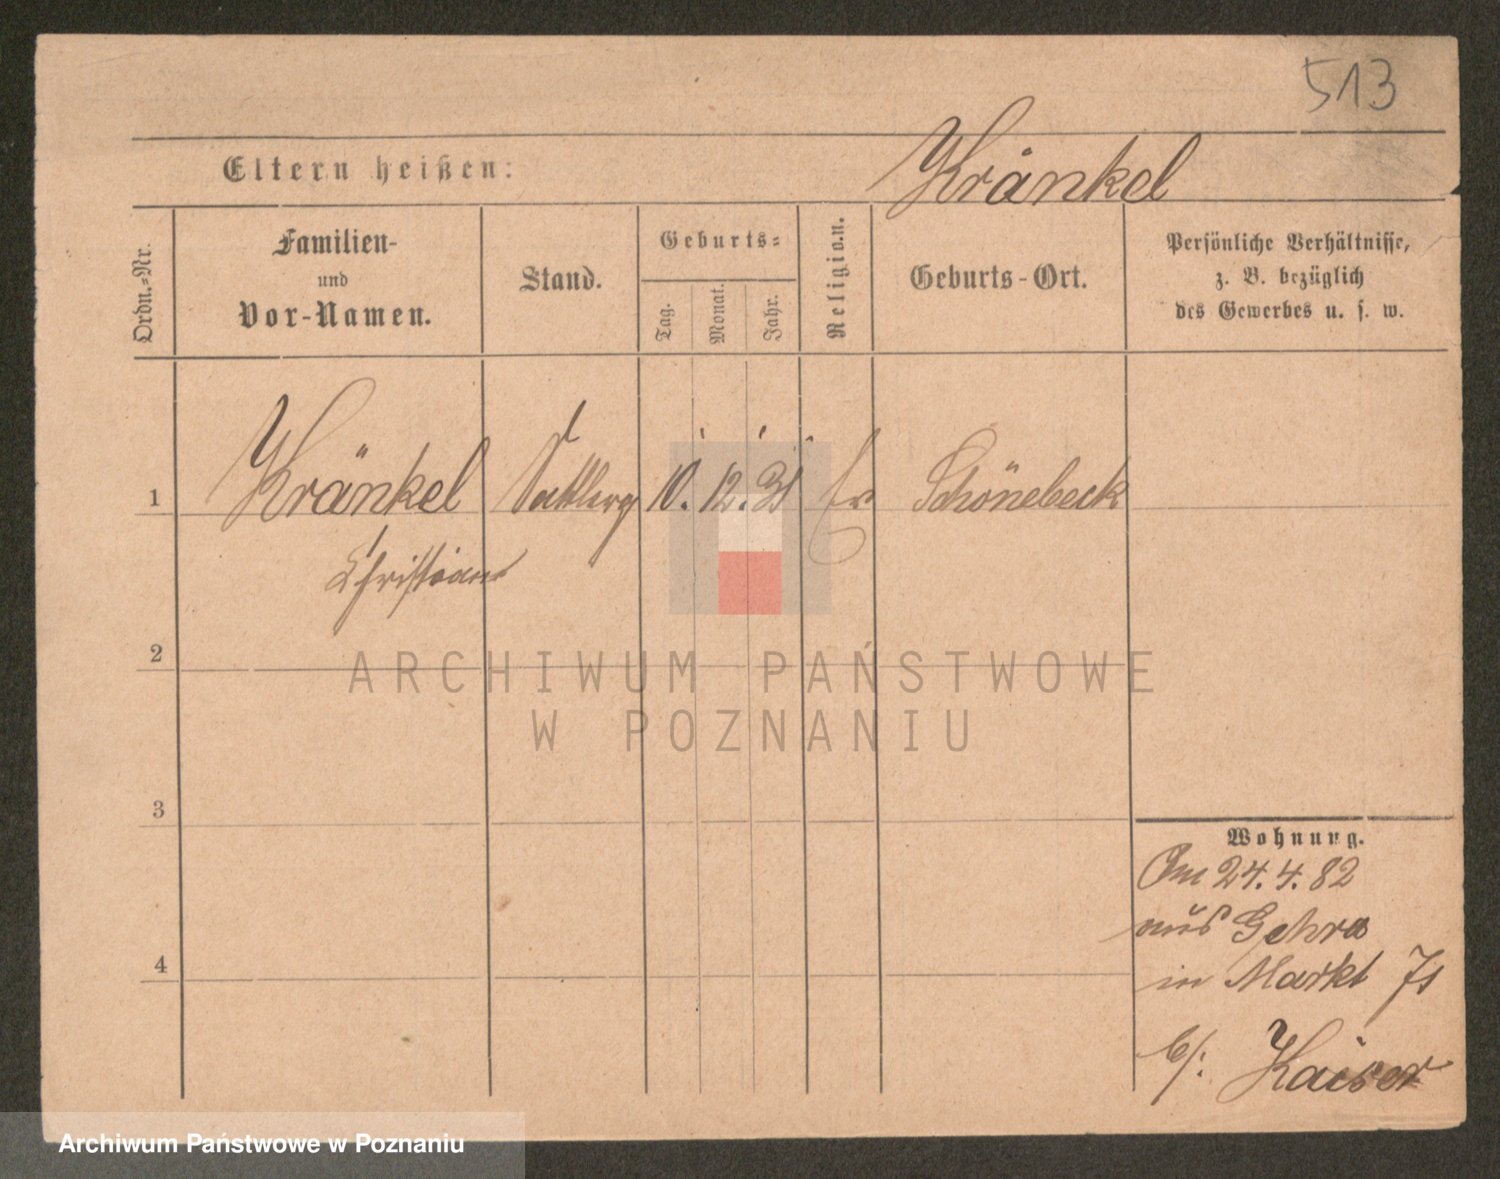 513
Eltern heißen:
Kränkel
Ordn.-Nr.
Familien-
und
Vor-Namen.
Stand.
Geburts-
Tag.
Monat.
Jahr.
Religion.
Geburts-Ort.
Persönliche Verhältnisse,
z. B. bezüglich
des Gewerbes u. s. w.
1 Kränkel Sattlerg 10. 12. 31 Ev Schönebeck
Christian
2
3
4
Wohnung.
Am 24. 4. 82
aus Gehra
in Markt
b/: Kaiser
ARCHIWUM PAŃSTWOWE
W POZNANIU
Archiwum Państwowe w Poznaniu